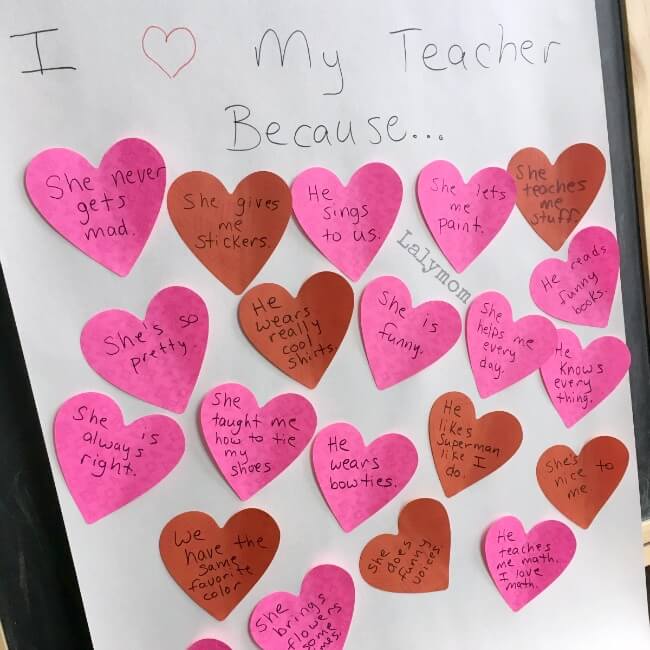 I ♡ My Teacher
Because...
She never
gets
mad.
She gives
me
stickers.
He
sings
to us.
She lets
me
paint.
She
teaches
me
stuff
He reads
funny
books.
She's so
pretty.
He
wears
really
cool
shirts.
She is
funny.
She
helps me
every
day.
He
knows
every
thing.
She
always's
right.
She
taught me
how to tie
my
shoes
He
wears
bowties.
He
likes
Superman
like I
do.
She's
nice to
me
We
have the
same
favorite
color
She
does
funny
voices
He
teaches
me math.
I love
math.
She
brings
flowers
some
Lalymom